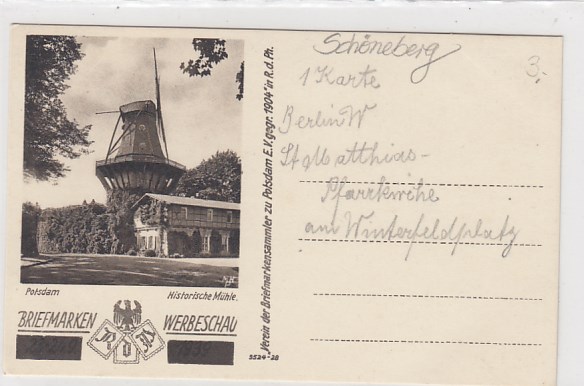 Schöneberg
3.-
1 Karte
Berlin W
St Matthias-
Pfarrkirche
am Winterfeldplatz
Verein der Briefmarkensammler zu Potsdam E.V. gegr. 1904 in R.d.Ph.
Potsdam Historische Mühle.
BRIEFMARKEN WERBESCHAU
5524-28